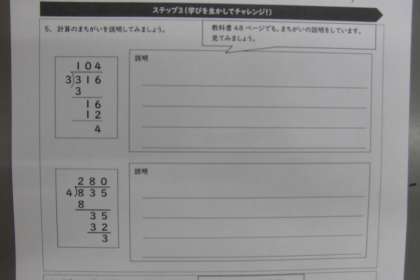 ステップ3(学びを生かしてチャレンジ!)
5. 計算のまちがいを説明してみましょう。
教科書48ページでも、まちがいの説明をしています。
見てみましょう。
104
3)316
3
16
12
4
説明
280
4)835
8
35
32
3
説明